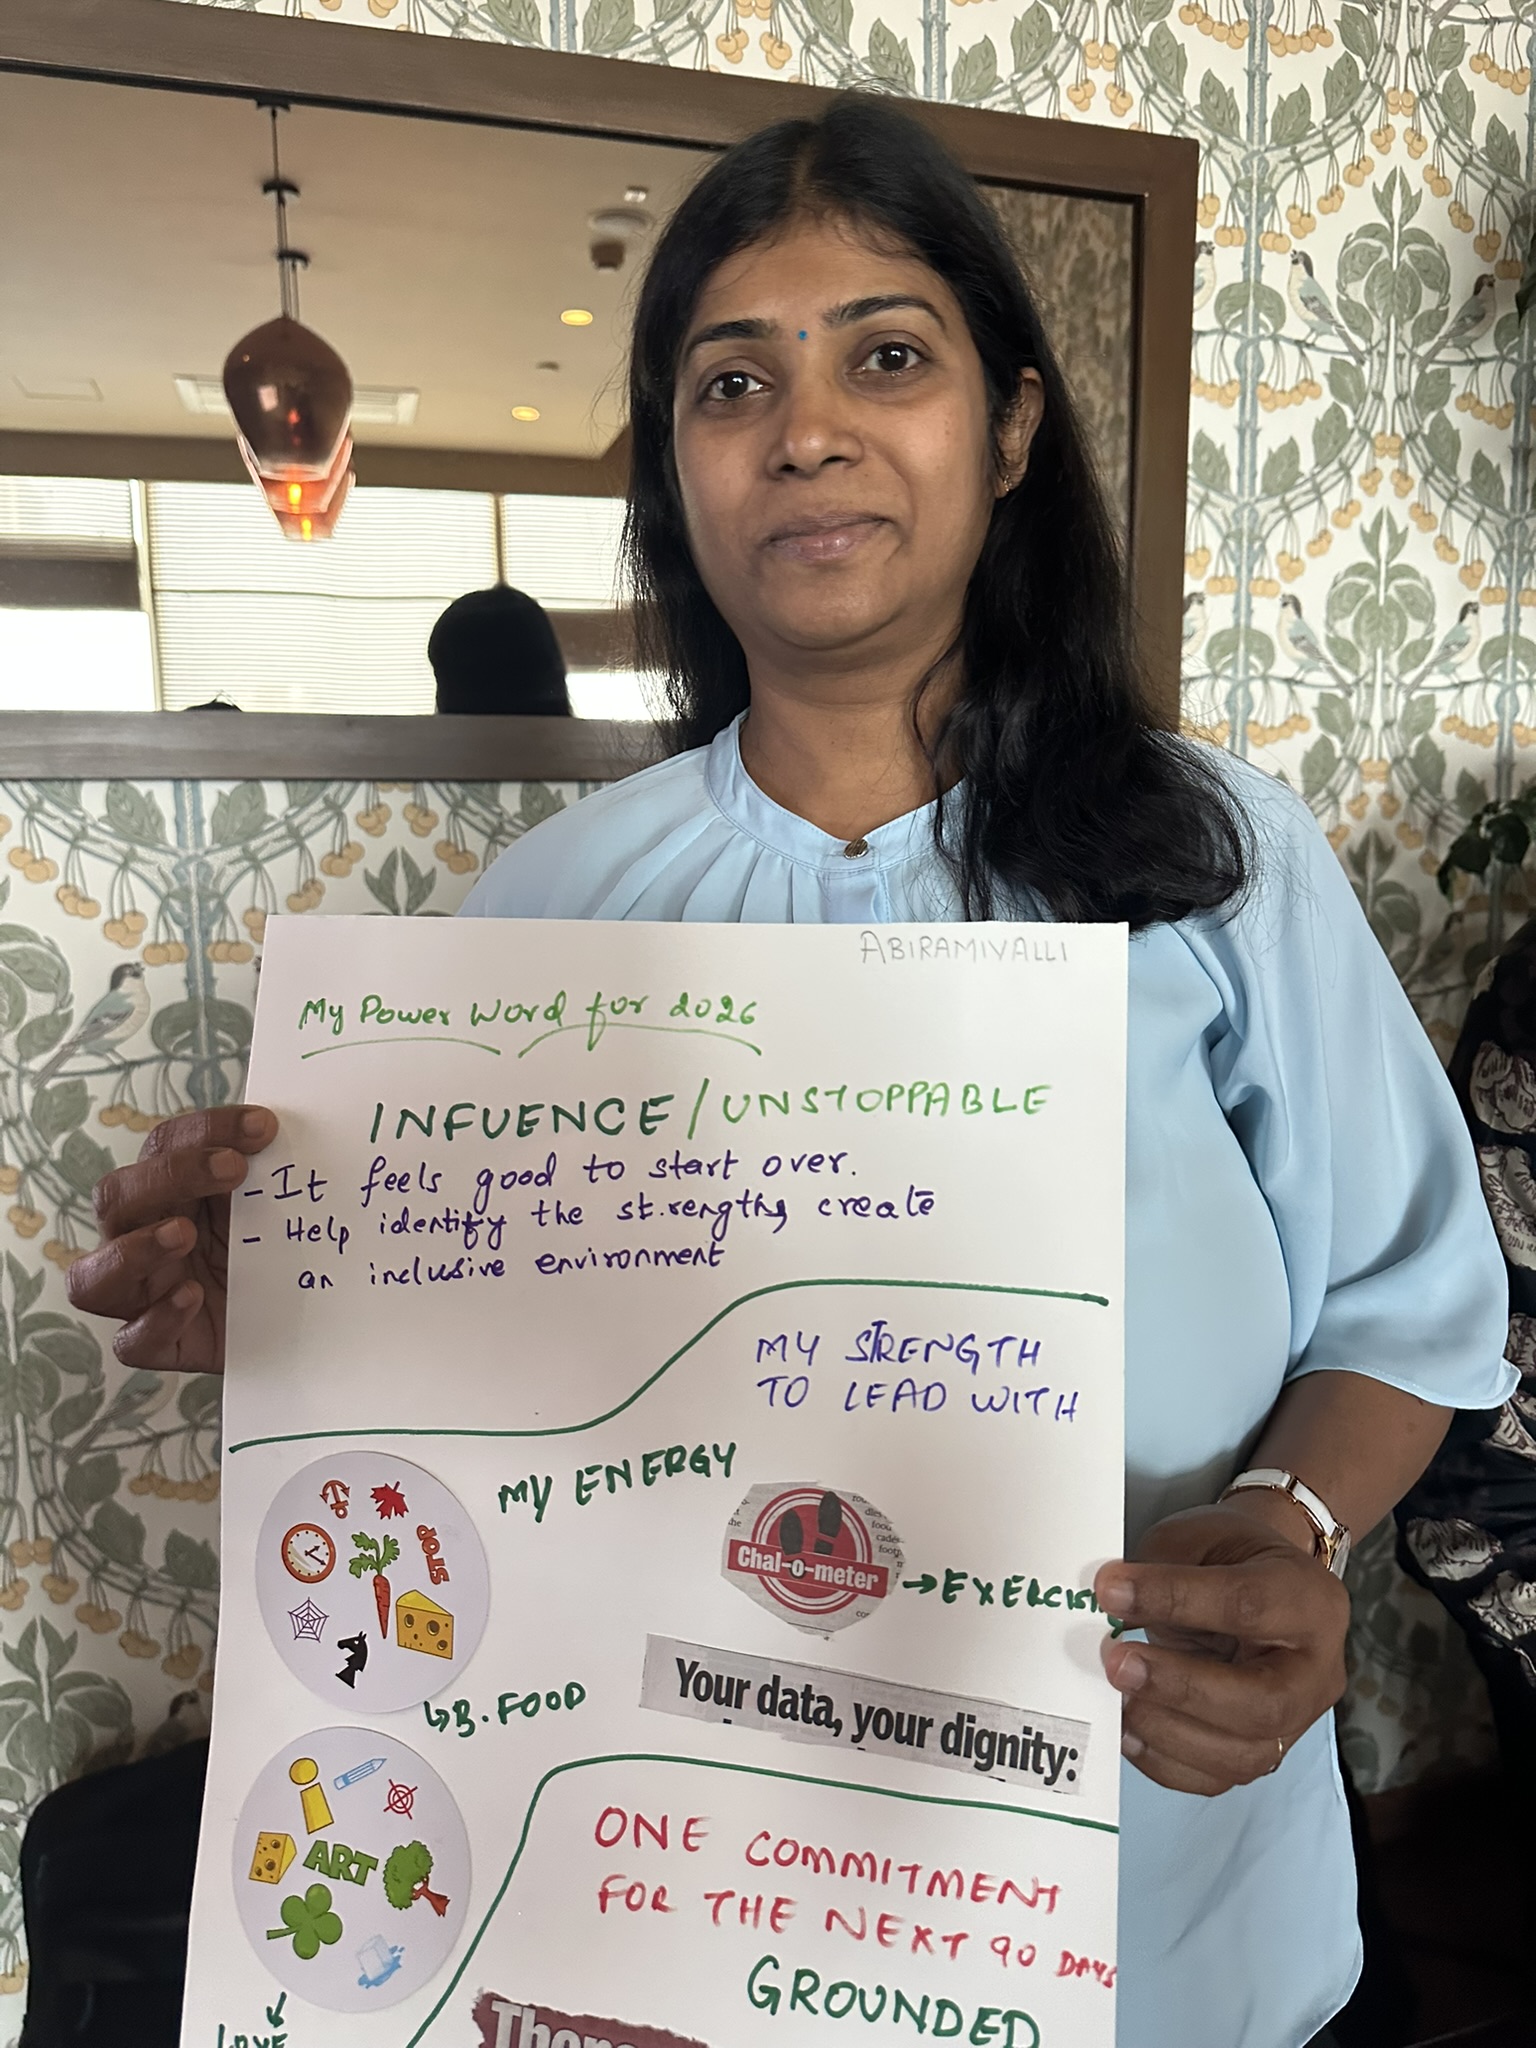 ABIRAMIVALLI
My Power Word for 2026
INFUENCE / UNSTOPPABLE
- It feels good to start over.
- Help identify the strengths, create
an inclusive environment
MY STRENGTH
TO LEAD WITH
MY ENERGY
STOP
Chal-o-meter
→ EXERCISING
↳ B. FOOD
Your data, your dignity:
ART
ONE COMMITMENT
FOR THE NEXT 90 DAYS
GROUNDED
LOVE